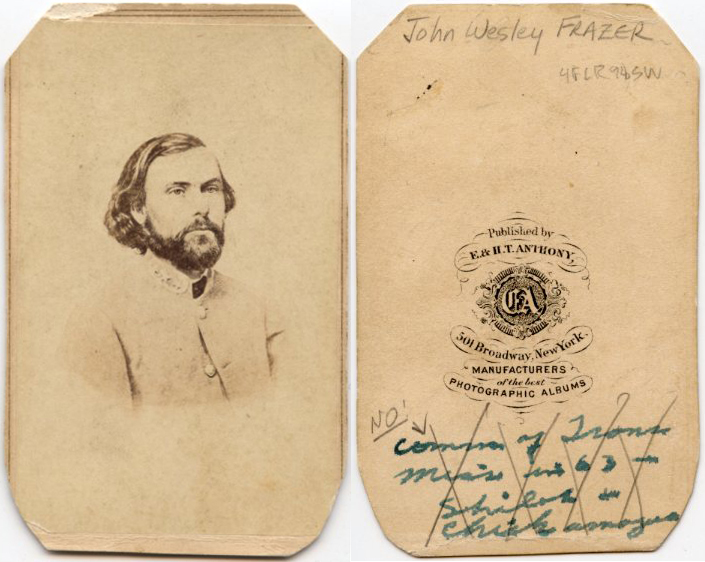 John Wesley FRAZER
Published by
E. & H.T. ANTHONY,
EA
501 Broadway, New York.
MANUFACTURERS
of the best
PHOTOGRAPHIC ALBUMS
NO!
?
of Trans
Miss in 63 -
Shiloh -
Chickamauga